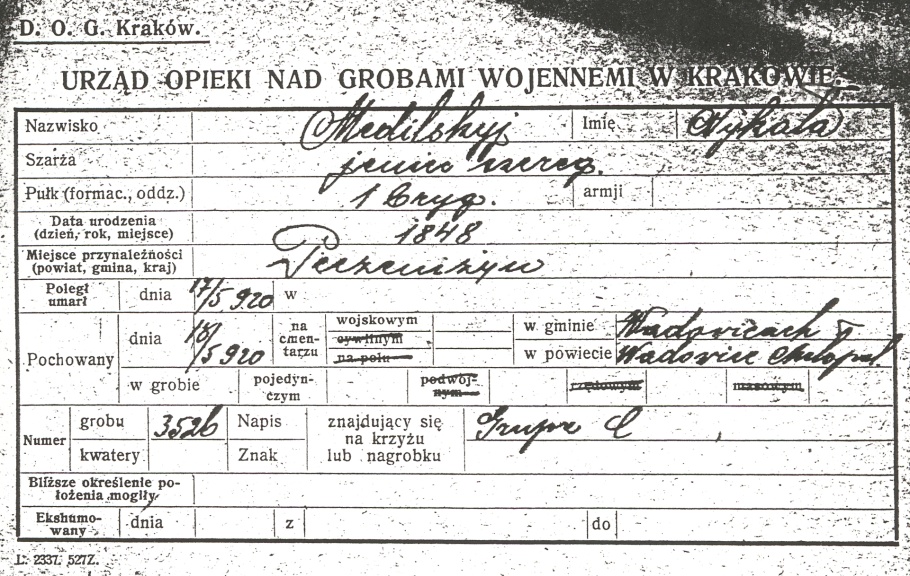 D. O. G. Kraków.
URZĄD OPIEKI NAD GROBAMI WOJENNEMI W KRAKOWIE.
Nazwisko Medilskyj Imię Wykola
Szarża jeniec szereg.
Pułk (formac., oddz.) 1 Bryg. armji
Data urodzenia (dzień, rok, miejsce) 1848
Miejsce przynależności (powiat, gmina, kraj) Peczeniżyn
Poległ umarł dnia 17/5 920 w
Pochowany dnia 18/5 920 na cmentarzu wojskowym cywilnym na polu w gminie Wadowicach
w powiecie Wadowice
w grobie pojedyńczym podwójnym rzędowym masowym
Numer grobu 3526 Napis znajdujący się na krzyżu lub nagrobku Grupa C
kwatery Znak
Bliższe określenie położenia mogiły
Ekshumowany dnia z do
L. 2337. 527Z.